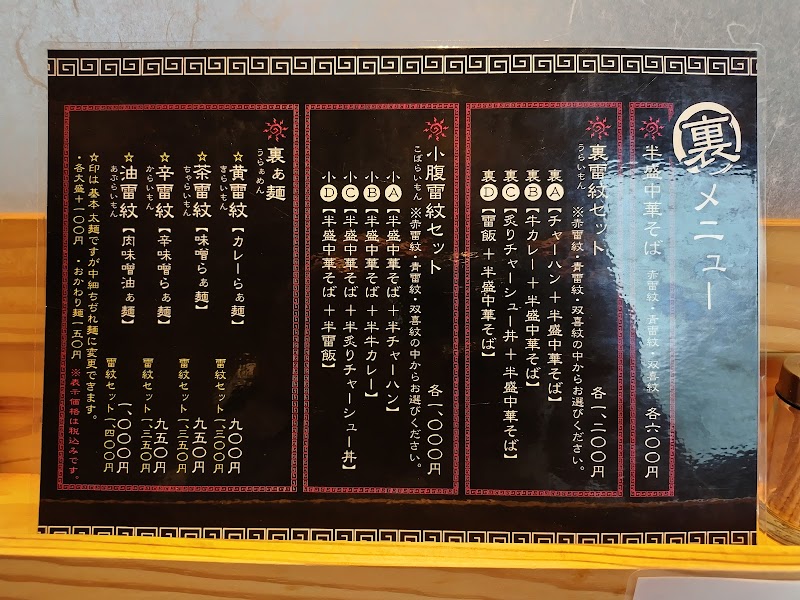 裏メニュー
半盛中華そば 赤雷紋・青雷紋・双喜紋 各六〇〇円
裏雷紋セット
うらいもん
※赤雷紋・青雷紋・双喜紋の中からお選びください。
各一、二〇〇円
裏A【チャーハン＋半盛中華そば】
裏B【牛カレー＋半盛中華そば】
裏C【炙りチャーシュー丼＋半盛中華そば】
裏D【雷飯＋半盛中華そば】
小腹雷紋セット
こばらいもん
※赤雷紋・青雷紋・双喜紋の中からお選びください。
各一、〇〇〇円
小A【半盛中華そば＋半チャーハン】
小B【半盛中華そば＋半牛カレー】
小C【半盛中華そば＋半炙りチャーシュー丼】
小D【半盛中華そば＋半雷飯】
裏ぁ麺
うらぁめん
☆黄雷紋【カレーらぁ麺】 九〇〇円
きぃらいもん
雷紋セット 一、三〇〇円
☆茶雷紋【味噌らぁ麺】 九五〇円
ちゃらいもん
雷紋セット 一、三五〇円
☆辛雷紋【辛味噌らぁ麺】 九五〇円
からいもん
雷紋セット 一、三五〇円
☆油雷紋【肉味噌油ぁ麺】 一、〇〇〇円
あぶらいもん
雷紋セット 一、四〇〇円
☆印は基本太麺ですが中細ちぢれ麺に変更できます。
・各大盛＋一〇〇円 ・おかわり麺一五〇円 ※表示価格は税込みです。